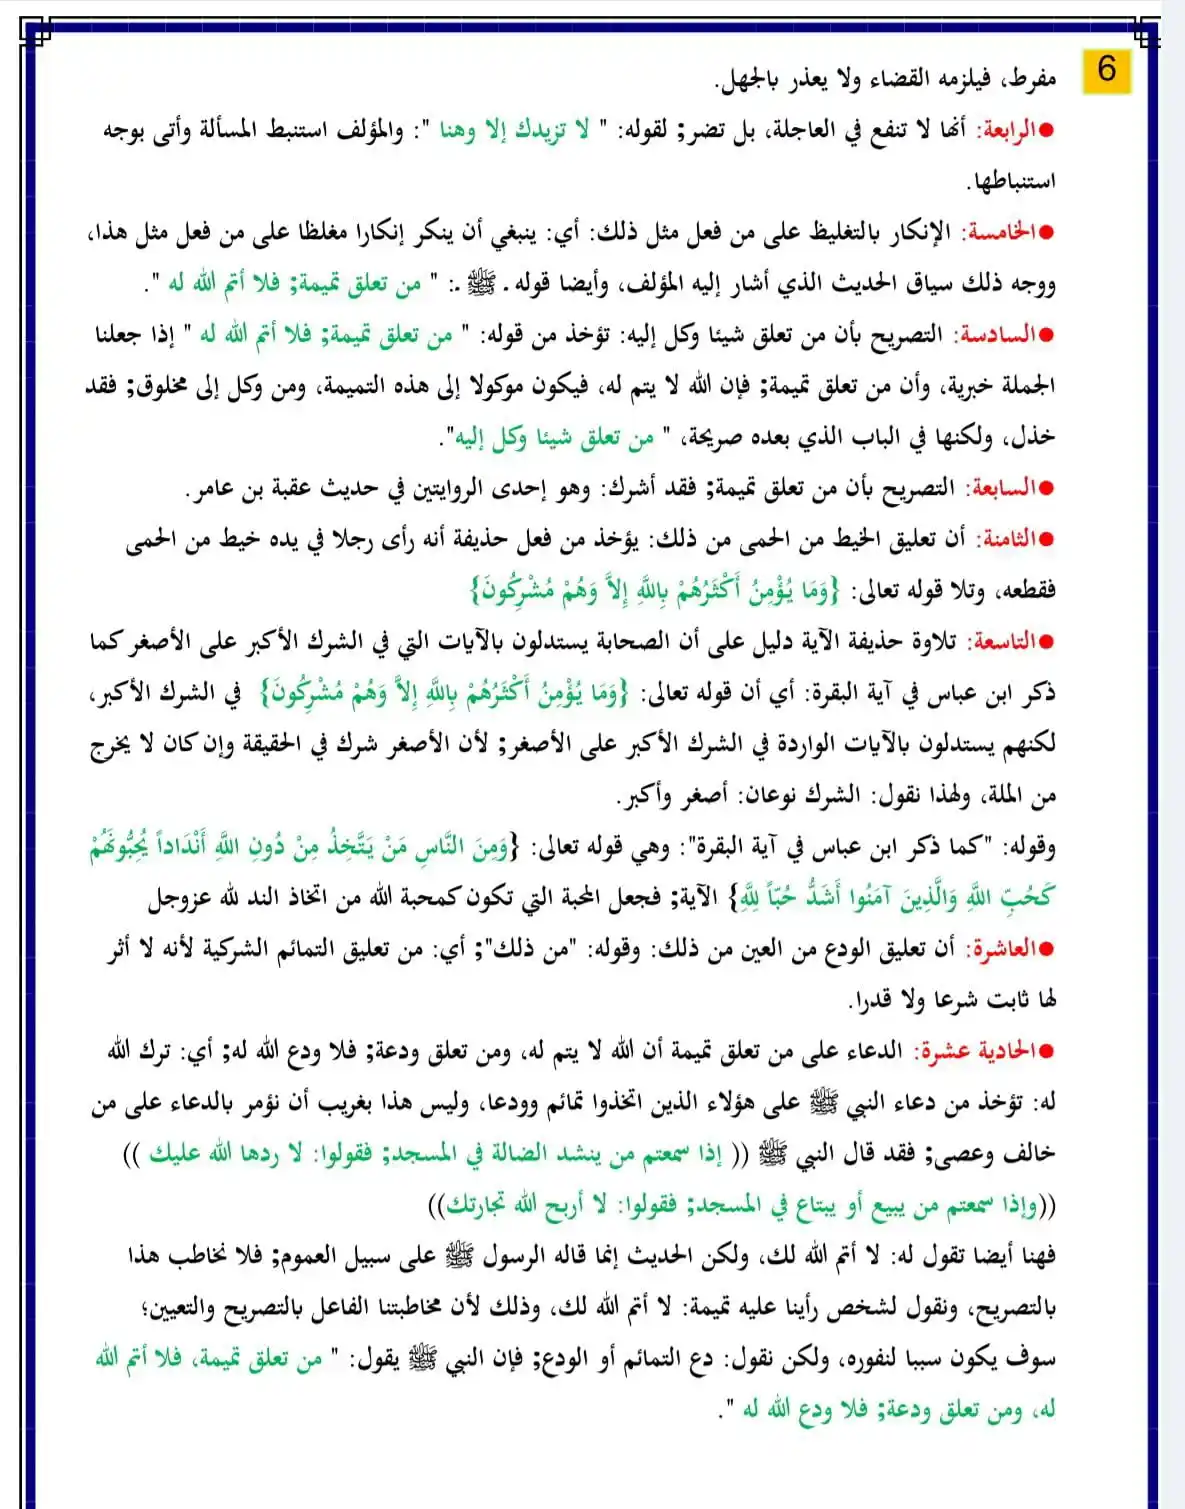 6
مفرط، فيلزمه القضاء ولا يعذر بالجهل.
●الرابعة: أنها لا تنفع في العاجلة، بل تضر; لقوله: " لا تزيدك إلا وهنا ": والمؤلف استنبط المسألة وأتى بوجه
استنباطها.
●الخامسة: الإنكار بالتغليظ على من فعل مثل ذلك: أي: ينبغي أن ينكر إنكارا مغلظا على من فعل مثل هذا،
ووجه ذلك سياق الحديث الذي أشار إليه المؤلف، وأيضا قوله ـ ﷺ ـ: " من تعلق تميمة; فلا أتم الله له ".
●السادسة: التصريح بأن من تعلق شيئا وكل إليه: تؤخذ من قوله: " من تعلق تميمة; فلا أتم الله له " إذا جعلنا
الجملة خبرية، وأن من تعلق تميمة; فإن الله لا يتم له، فيكون موكولا إلى هذه التميمة، ومن وكل إلى مخلوق; فقد
خذل، ولكنها في الباب الذي بعده صريحة، " من تعلق شيئا وكل إليه".
●السابعة: التصريح بأن من تعلق تميمة; فقد أشرك: وهو إحدى الروايتين في حديث عقبة بن عامر.
●الثامنة: أن تعليق الخيط من الحمى من ذلك: يؤخذ من فعل حذيفة أنه رأى رجلا في يده خيط من الحمى
فقطعه، وتلا قوله تعالى: {وَمَا يُؤْمِنُ أَكْثَرُهُمْ بِاللَّهِ إِلاَّ وَهُمْ مُشْرِكُونَ}
●التاسعة: تلاوة حذيفة الآية دليل على أن الصحابة يستدلون بالآيات التي في الشرك الأكبر على الأصغر كما
ذكر ابن عباس في آية البقرة: أي أن قوله تعالى: {وَمَا يُؤْمِنُ أَكْثَرُهُمْ بِاللَّهِ إِلاَّ وَهُمْ مُشْرِكُونَ} في الشرك الأكبر،
لكنهم يستدلون بالآيات الواردة في الشرك الأكبر على الأصغر; لأن الأصغر شرك في الحقيقة وإن كان لا يخرج
من الملة، ولهذا نقول: الشرك نوعان: أصغر وأكبر.
وقوله: "كما ذكر ابن عباس في آية البقرة": وهي قوله تعالى: {وَمِنَ النَّاسِ مَنْ يَتَّخِذُ مِنْ دُونِ اللَّهِ أَنْدَاداً يُحِبُّونَهُمْ
كَحُبِّ اللَّهِ وَالَّذِينَ آمَنُوا أَشَدُّ حُبّاً لِلَّهِ} الآية; فجعل المحبة التي تكون كمحبة الله من اتخاذ الند لله عزوجل
●العاشرة: أن تعليق الودع من العين من ذلك: وقوله: "من ذلك"; أي: من تعليق التمائم الشركية لأنه لا أثر
لها ثابت شرعا ولا قدرا.
●الحادية عشرة: الدعاء على من تعلق تميمة أن الله لا يتم له، ومن تعلق ودعة; فلا ودع الله له; أي: ترك الله
له: تؤخذ من دعاء النبي ﷺ على هؤلاء الذين اتخذوا تمائم وودعا، وليس هذا بغريب أن نؤمر بالدعاء على من
خالف وعصى; فقد قال النبي ﷺ (( إذا سمعتم من ينشد الضالة في المسجد; فقولوا: لا ردها الله عليك ))
((وإذا سمعتم من يبيع أو يبتاع في المسجد; فقولوا: لا أربح الله تجارتك))
فهنا أيضا تقول له: لا أتم الله لك، ولكن الحديث إنما قاله الرسول ﷺ على سبيل العموم; فلا نخاطب هذا
بالتصريح، ونقول لشخص رأينا عليه تميمة: لا أتم الله لك، وذلك لأن مخاطبتنا الفاعل بالتصريح والتعيين؛
سوف يكون سببا لنفوره، ولكن نقول: دع التمائم أو الودع; فإن النبي ﷺ يقول: " من تعلق تميمة، فلا أتم الله
له، ومن تعلق ودعة; فلا ودع الله له ".